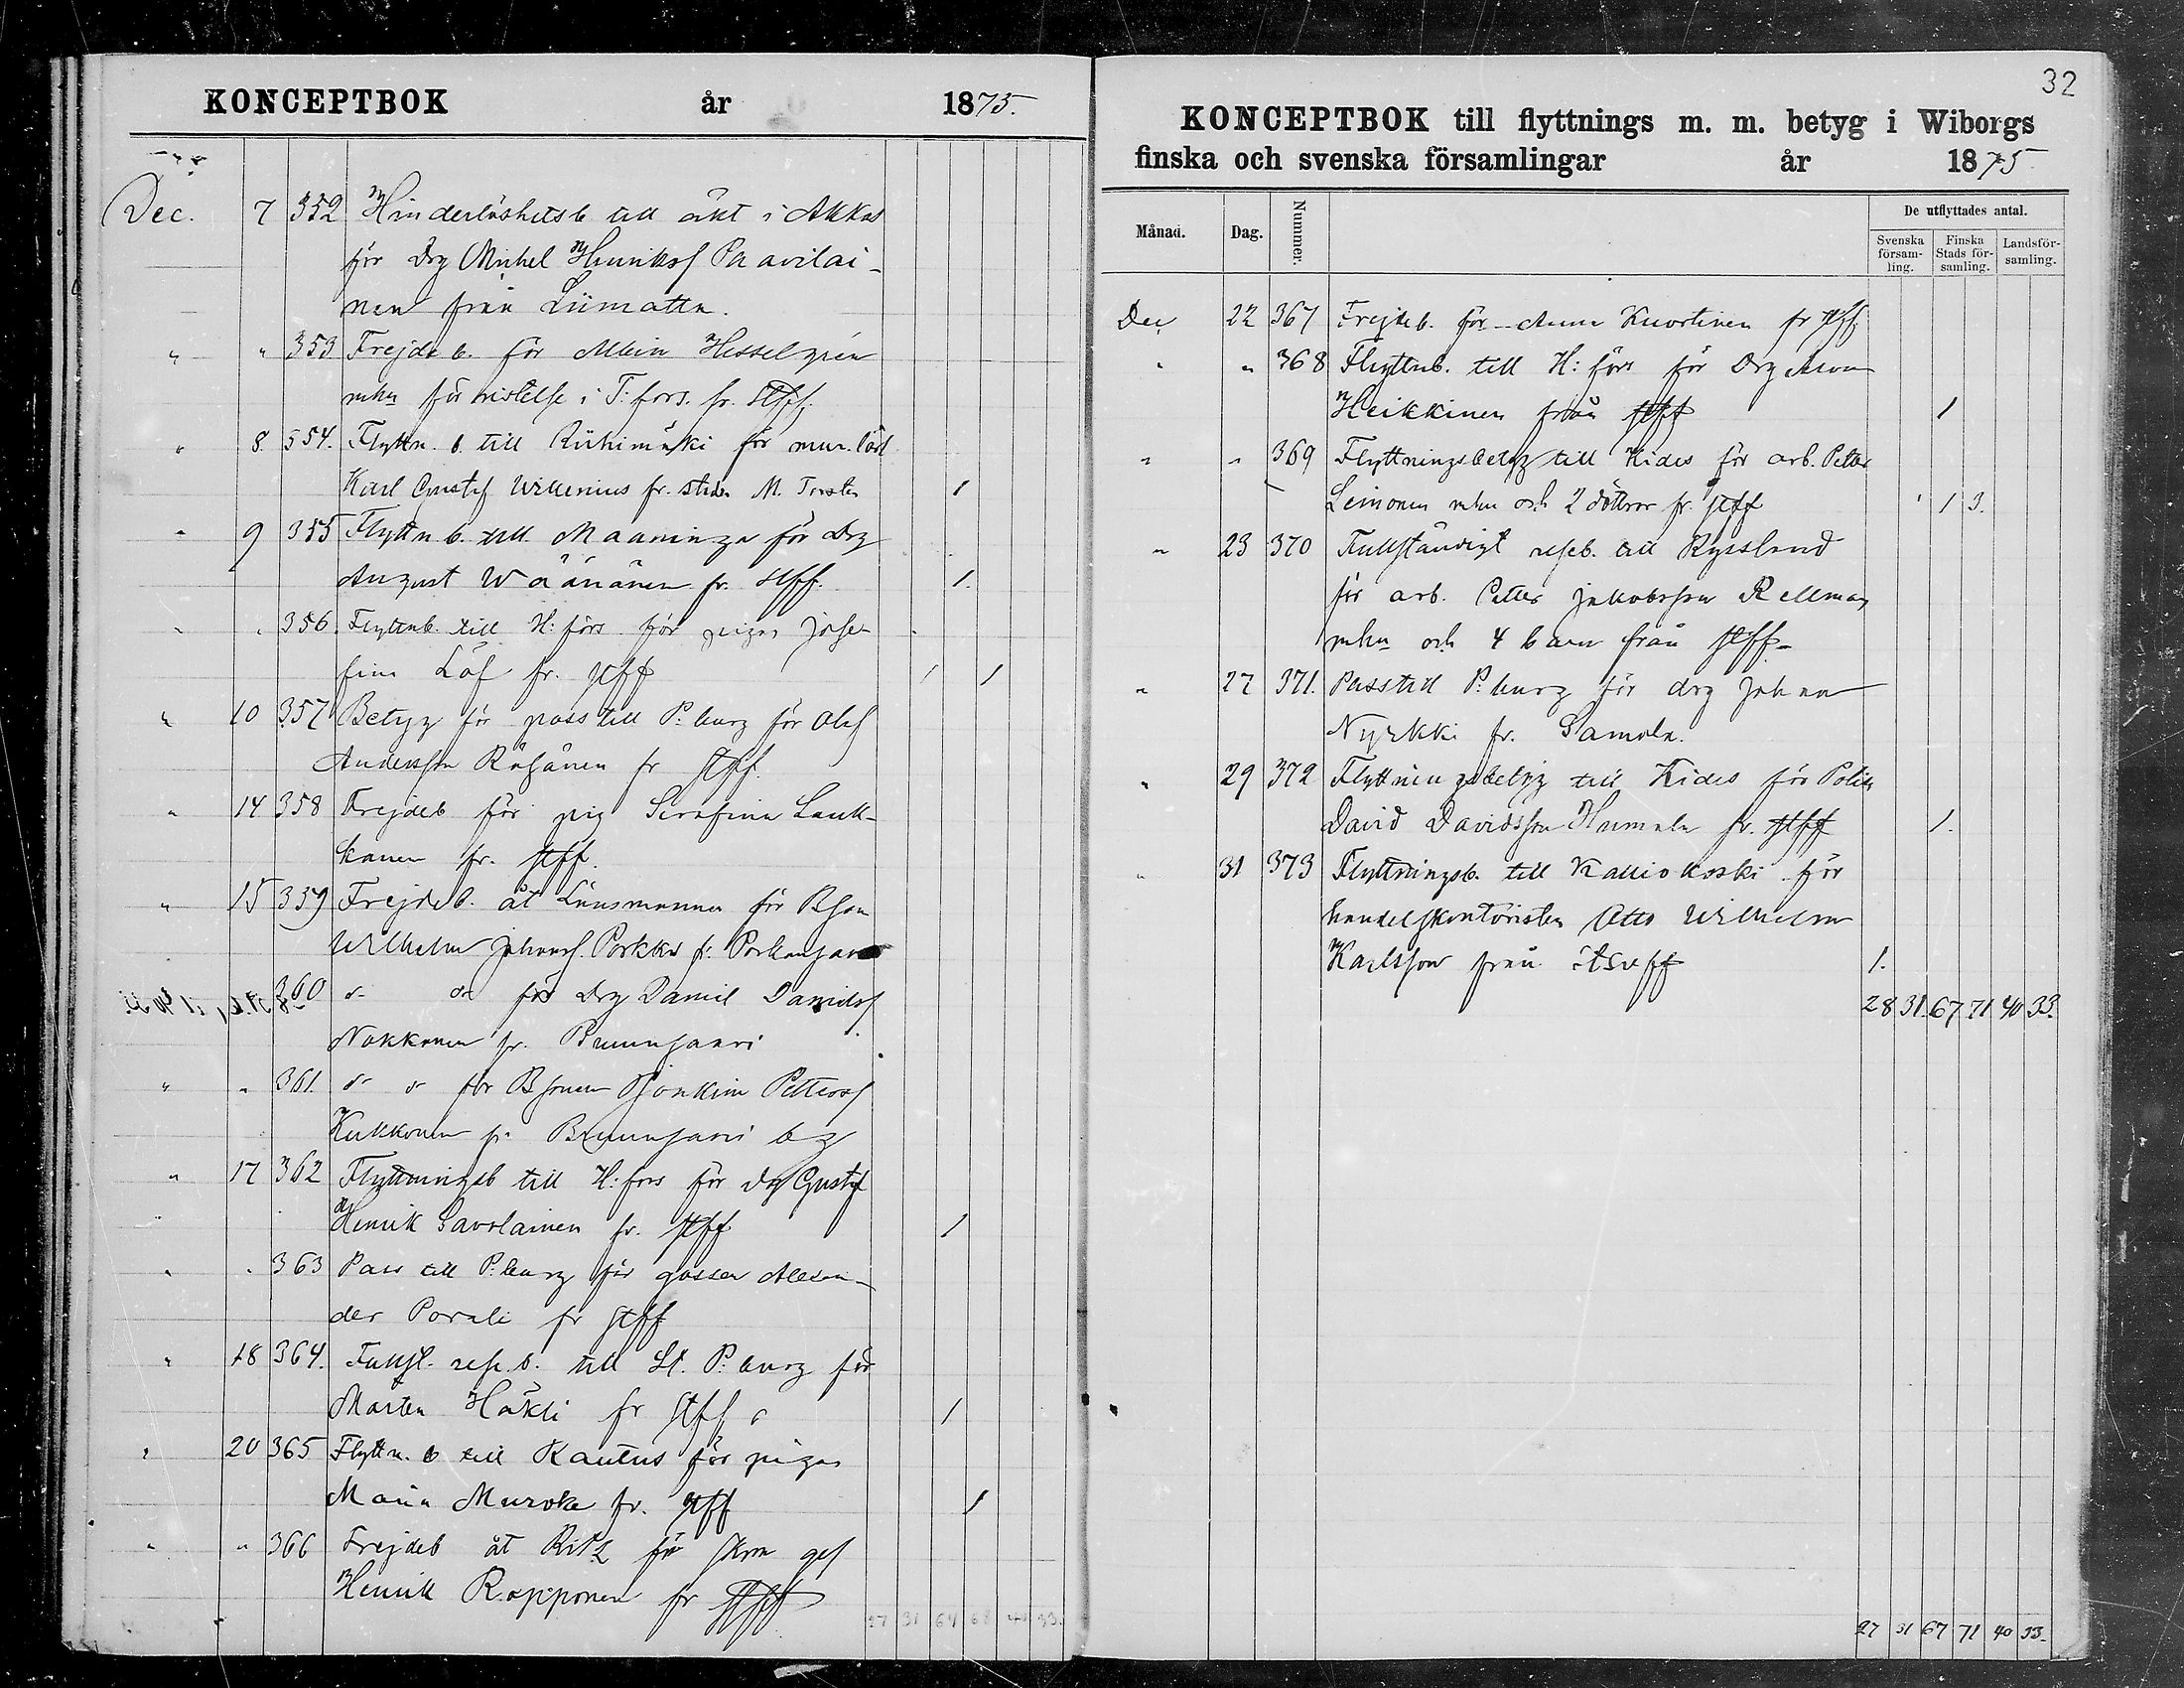 KONCEPTBOK år 1875.
Dec. 7 352 Hinderlöshetsb till äkt i Akkas
för Drg Mickel Henriksf Paavilai-
nen från Liimatta.
" " 353 Frejdeb. för Albin Hesselgrén
mhu för vistelse i T:fors. fr. stff.
" 8. 354. Flyttn. b. till Riihimäki för mur. lärl
Karl Gustaf Willenius fr. staden M. Torsten 1
" 9 355 Flyttn b. till Maaninga för Drg
August Wäänänen fr. stff. 1.
" " 356. Flyttnb. till H:fors för pigan Jose-
fina Löf fr. stff 1 1
" 10 357 Betyg för pass till P:burg för Olof
Andersson Räsänen fr stff.
" 14 358 Frejdeb för pig Serafina Lauk-
kanen fr. stff.
" 15 359 Frejdeb. åt Länsmannen för Bson
Wilhelm Johansf. Porkka fr.
360 d- do för Drg Daniel Davidsf
Nokkonen fr.
" " 361. d- d- för Bsonen Joakim Petterss
Kukkonen fr.
" 17 362 Flyttningsb till H:fors för Drg Gustaf
Henrik Savolainen fr. stff 1
" " 363 Pass till P:burg för gossen Alexan-
der Porali fr stff
" 18 364. Fullst. reseb. till St. P:burg för
Marten Häkli fr stff 1
" 20 365 Flyttn. b till Kautus för pigan
Maria Murska fr. stff 1
" " 366 Frejdeb åt för
Henrik Rapponen fr stff
27 31 64 68 40 33.
32
KONCEPTBOK till flyttnings m. m. betyg i Wiborgs
finska och svenska församlingar år 1875
Månad. Dag. Nummer. De utflyttades antal.
Svenska försam-ling. Finska Stads för-samling. Landsför-samling.
Dec 22 367 Frejdeb. för Anna Kuortinen fr stff.
" " 368 Flyttnb. till H:fors för Drg
Heikkinen från stff 1
" " 369 Flyttningsbetyg till Kides för arb. Petter
Leinonen mhu och 2 döttrar fr. stff 1 3.
" 23 370 Fullständigt reseb. till Ryssland
för arb. Petter Jakobsson Rellman
mhu och 4 barn från stff-
" 27 371. Pass till P:burg för drg Johan
Nyrkki fr. Samola.
" 29 372 Flyttningsbetyg till Kides för Polis
David Davidsson Humala fr. stff 1.
" 31 373 Flyttningsb. till Kalliokoski för
handelskontoristen Otto Wilhelm
Karlsson från stsvff 1.
28 31. 67 71 40 33.
27 31 67 71 40 33.